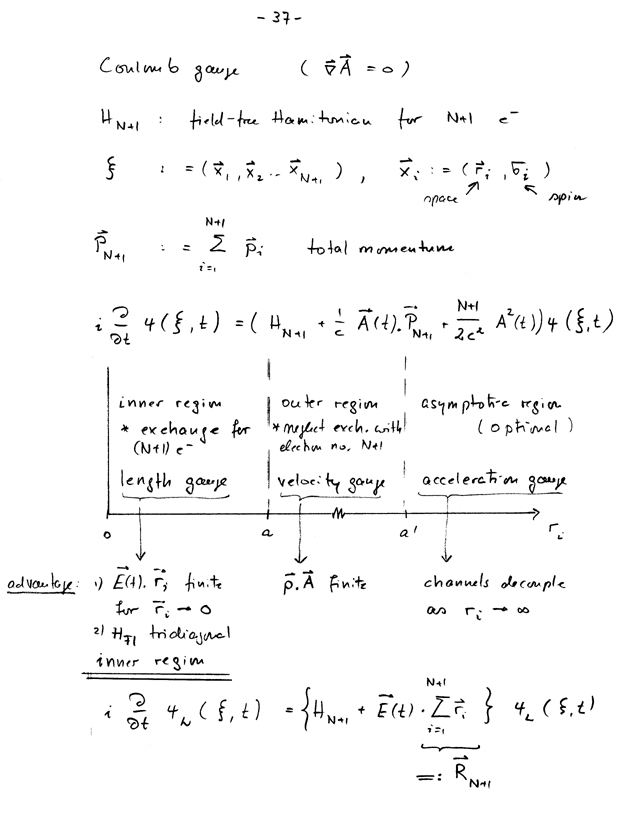 - 37 -
Coulomb gauge ( ∇⃗A⃗ = 0 )
H_{N+1} : field-free Hamiltonian for N+1 e⁻
ξ := (x⃗₁, x⃗₂ ... x⃗_{N+1}) , x⃗ᵢ := (r⃗ᵢ, σᵢ)
space spin
P⃗_{N+1} := Σ_{i=1}^{N+1} p⃗ᵢ total momentum
i ∂/∂t ψ(ξ,t) = ( H_{N+1} + 1/c A⃗(t). P⃗_{N+1} + (N+1)/2c² A²(t)) ψ(ξ,t)
inner region
* exchange for
(N+1) e⁻
length gauge
outer region
* neglect exch. with
electron no. N+1
velocity gauge
asymptotic region
(optional)
acceleration gauge
0 a a' rᵢ
advantage: 1) E⃗(t). r⃗ᵢ finite
for r⃗ᵢ → 0
2) H_{Fl} tridiagonal
p⃗.A⃗ finite
channels decouple
as rᵢ → ∞
inner region
i ∂/∂t ψ_L (ξ,t) = {H_{N+1} + E⃗(t) . Σ_{i=1}^{N+1} r⃗ᵢ } ψ_L (ξ,t)
=: R⃗_{N+1}